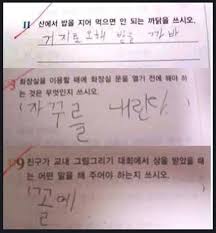 11 산에서 밥을 지어 먹으면 안 되는 까닭을 쓰시오.
거지로 오해 받을 까봐
화장실을 이용할 때에 화장실 문을 열기 전에 해야 하
는 것은 무엇인지 쓰시오.
(자꾸를 내린다.)
9 친구가 교내 그림그리기 대회에서 상을 받았을 때
는 어떤 말을 해 주어야 하는지 쓰시오.
(꼴에